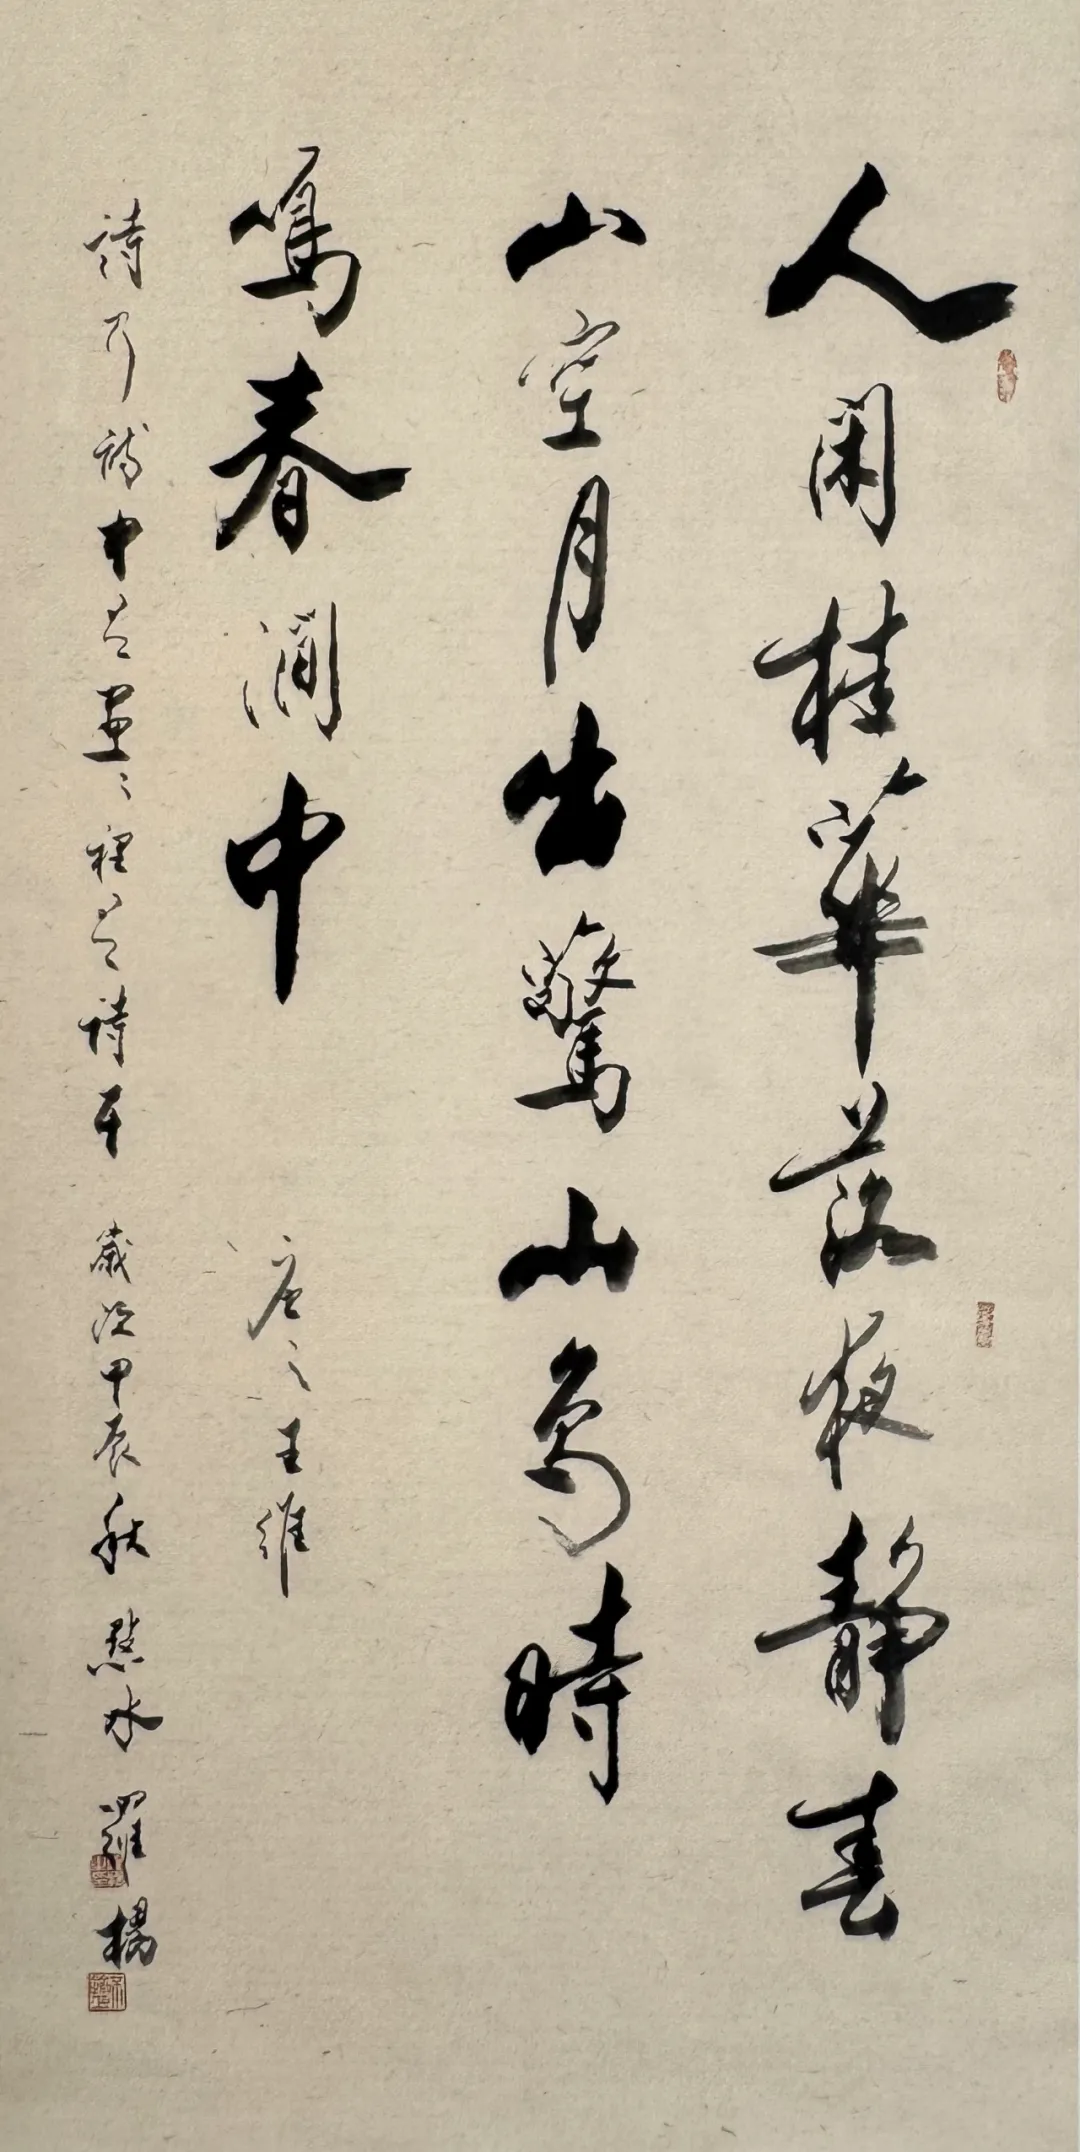 人閑桂華落夜靜春
山空月出驚山鳥時
鳴春澗中
唐之王維
詩乃詩中畫〻裡詩耳 歲次甲辰秋 水 羅楊